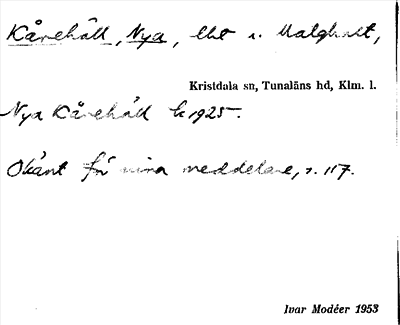 Kårehåll, Nya, lht u. Malghult,
Kristdala sn, Tunaläns hd, Klm. l.
Nya Kårehåll Ek 1925.
Okänt för mina meddelare, s. 117.
Ivar Modéer 1953